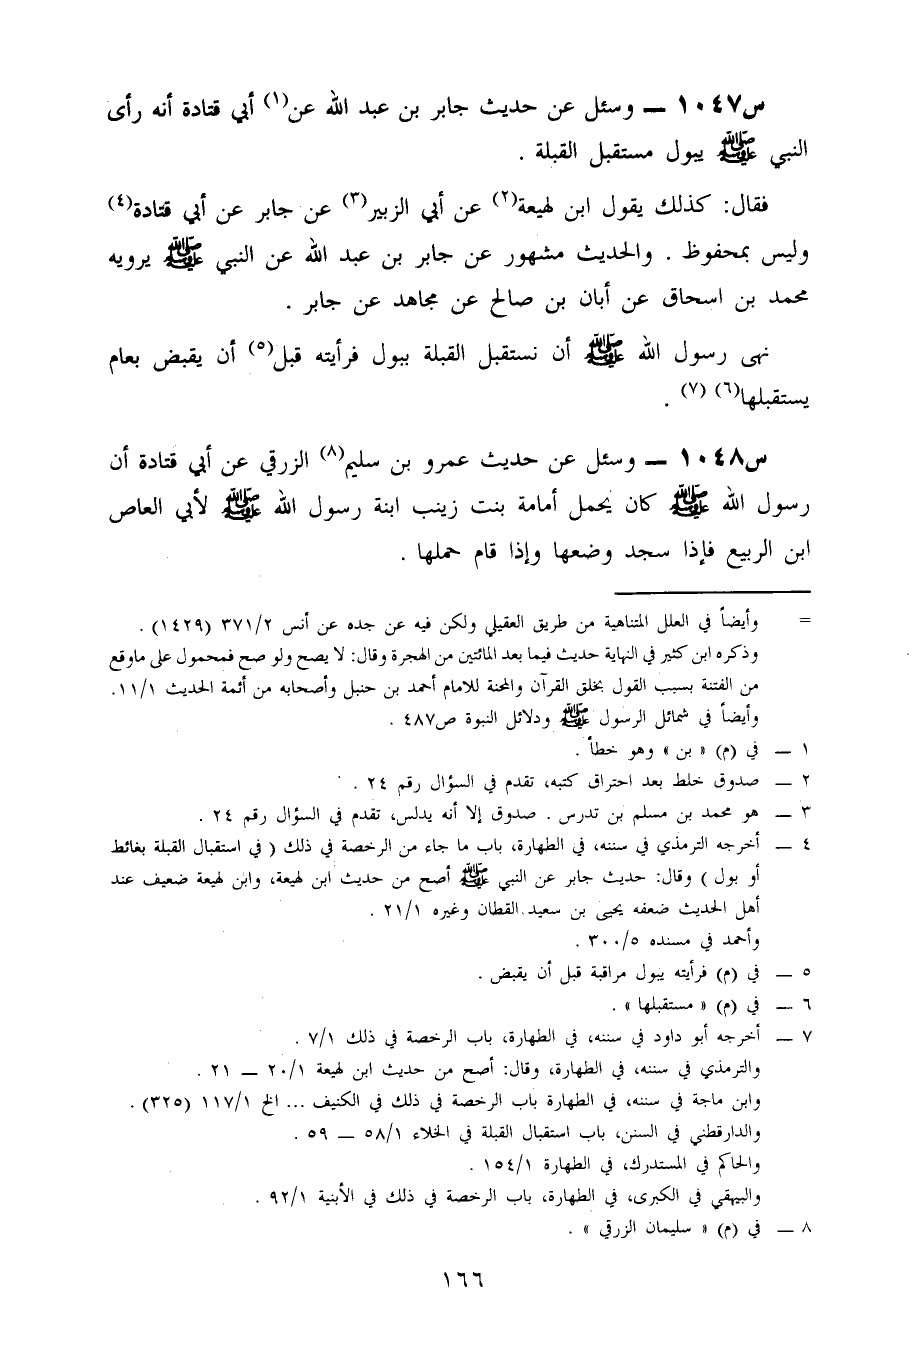 س١٠٤٧ – وسئل عن حديث جابر بن عبد الله عن(١) أبي قتادة أنه رأى
النبي ﷺ يبول مستقبل القبلة .
فقال: كذلك يقول ابن لهيعة(٢) عن أبي الزبير(٣) عن جابر عن أبي قتادة(٤)
وليس بمحفوظ . والحديث مشهور عن جابر بن عبد الله عن النبي ﷺ يرويه
محمد بن اسحاق عن أبان بن صالح عن مجاهد عن جابر .
نهى رسول الله ﷺ أن نستقبل القبلة ببول فرأيته قبل(٥) أن يقبض بعام
يستقبلها(٦) (٧) .
س١٠٤٨ – وسئل عن حديث عمرو بن سليم(٨) الزرقي عن أبي قتادة أن
رسول الله ﷺ كان يحمل أمامة بنت زينب ابنة رسول الله ﷺ لأبي العاص
ابن الربيع فإذا سجد وضعها وإذا قام حملها .
= وأيضاً في العلل المتناهية من طريق العقيلي ولكن فيه عن جده عن أنس ٣٧١/٢ (١٤٢٩) .
وذكره ابن كثير في النهاية حديث فيما بعد المائتين من الهجرة وقال: لا يصح ولو صح فمحمول على ماوقع
من الفتنة بسبب القول بخلق القرآن والمحنة للامام أحمد بن حنبل وأصحابه من أئمة الحديث ١١/١.
وأيضاً في شمائل الرسول ﷺ ودلائل النبوة ص٤٨٧ .
١ – في (م) « بن » وهو خطأ .
٢ – صدوق خلط بعد احتراق كتبه، تقدم في السؤال رقم ٢٤ .
٣ – هو محمد بن مسلم بن تدرس . صدوق إلا أنه يدلس، تقدم في السؤال رقم ٢٤ .
٤ – أخرجه الترمذي في سننه، في الطهارة، باب ما جاء من الرخصة في ذلك ( في استقبال القبلة بغائط
أو بول ) وقال: حديث جابر عن النبي ﷺ أصح من حديث ابن لهيعة، وابن لهيعة ضعيف عند
أهل الحديث ضعفه يحيى بن سعيد القطان وغيره ٢١/١ .
وأحمد في مسنده ٣٠٠/٥ .
٥ – في (م) فرأيته يبول مراقبة قبل أن يقبض .
٦ – في (م) « مستقبلها » .
٧ – أخرجه أبو داود في سننه، في الطهارة، باب الرخصة في ذلك ٧/١ .
والترمذي في سننه، في الطهارة، وقال: أصح من حديث ابن لهيعة ٢٠/١ – ٢١ .
وابن ماجة في سننه، في الطهارة باب الرخصة في ذلك في الكنيف ... الخ ١١٧/١ (٣٢٥) .
والدارقطني في السنن، باب استقبال القبلة في الخلاء ٥٨/١ – ٥٩ .
والحاكم في المستدرك، في الطهارة ١٥٤/١ .
والبيهقي في الكبرى، في الطهارة، باب الرخصة في ذلك في الأبنية ٩٢/١ .
٨ – في (م) « سليمان الزرقي » .
١٦٦